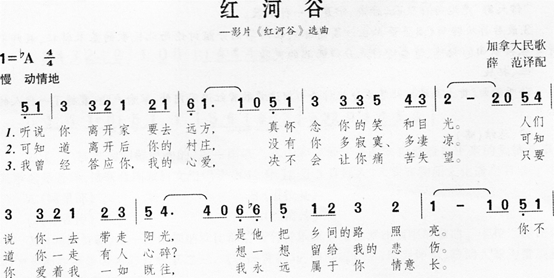 红河谷
—影片《红河谷》选曲
1=♭A 4/4
加拿大民歌
慢 动情地
薛 范译配
5 1 | 3 3 2 1 2 1 | 6 1. 1 0 5 1 | 3 3 3 5 4 3 | 2 - 2 0 5 4 |
1.听说 你 离开家 要去 远方, 真怀 念 你的笑 和目 光。 人们
2.可知 道 离开后 你的 村庄, 没有 你 多寂寞、多凄 凉。 可知
3.我曾 经 答应你,我的 心爱, 决不 会 让你痛 苦失 望。 只要
3 3 2 1 2 3 | 5 4. 4 0 6 6 | 5 1 2 3 | 2 1 - 1 0 5 1
说 你一去 带走 阳光, 是他 把 乡间的路 照 亮。 你不
道 你一走 有人 心碎? 想一 想 留给我的 悲 伤。
你 爱着我 一如 既往, 我永 远 属于你 情意 长。